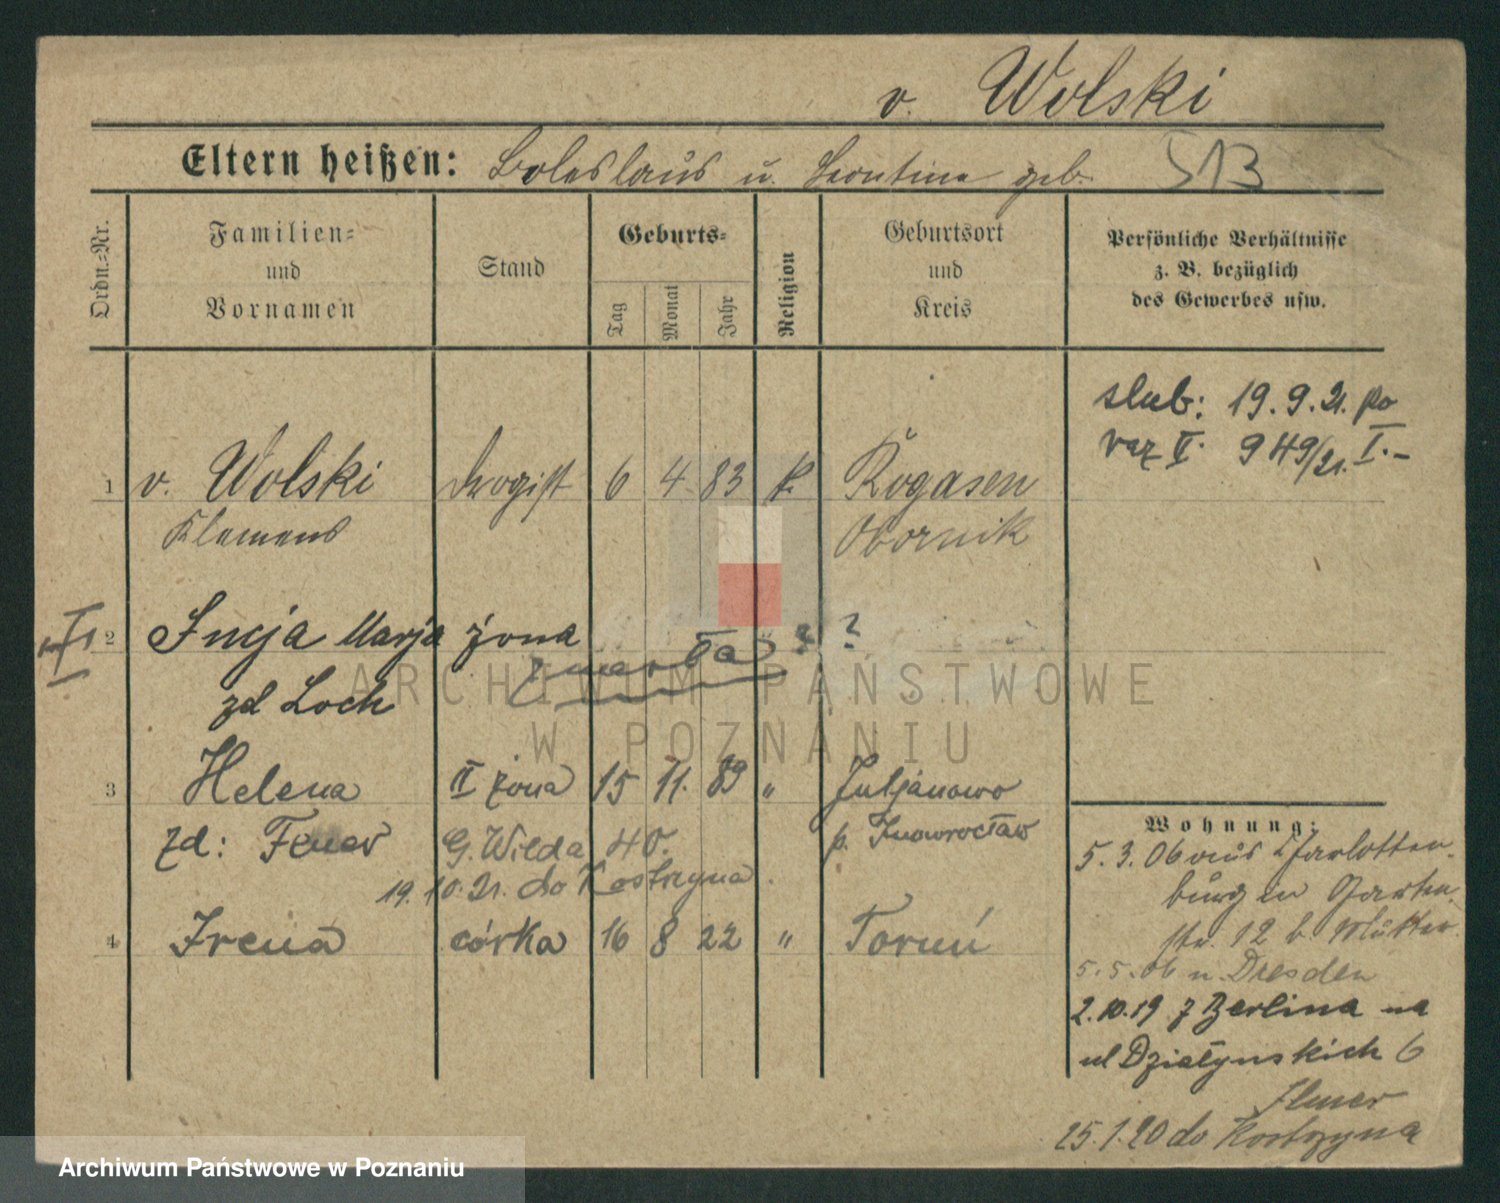 v. Wolski
Eltern heißen: Boleslaus u. Leontine geb. 513
Ordn.-Nr.
Familien-
und
Vornamen
Stand
Geburts-
Tag
Monat
Jahr
Religion
Geburtsort
und
Kreis
Persönliche Verhältnisse
z. B. bezüglich
des Gewerbes usw.
slub: 19.9.21. po
raz II. 949/21. I.-
1 v. Wolski Drogist 6 4 83 k. Rogasen
Klemens Obornik
2 Łucja Marja żona ? ?
zmarła
zd Loch
3 Helena II żona 15 11. 89 " Juljanowo
zd: G. Wilda 40. p. Inowrocław
19.10.21. do Kostrzyna.
4 Irena córka 16 8 22 " Toruń
Wohnung:
5.3.06 aus Charlotten-
burg
str. 12 b. Mutter.
5.5.06 n. Dresden
2.10.19 z Berlina na
ul Działynskich 6
25.1.20 do Kostrzyna
ARCHIWUM PAŃSTWOWE
W POZNANIU
Archiwum Państwowe w Poznaniu